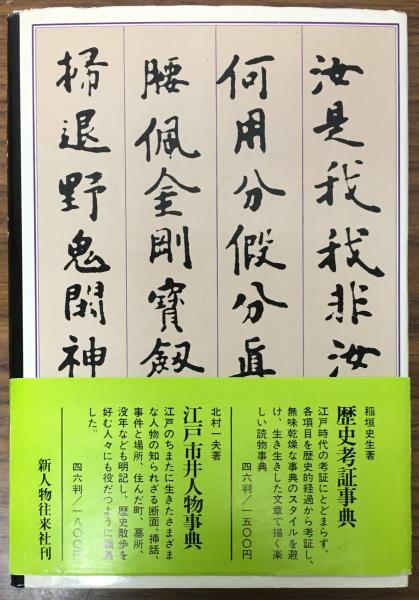 汝是我我非汝
何用分假分真
腰佩金剛寶劔
掃退野鬼閑神
稲垣史生著
歴史考証事典
江戸時代の考証にとどまらず、
各項目を歴史的経過から考証し、
無味乾燥な事典のスタイルを避
け、生き生きした文章で描く楽
しい読物事典
四六判/一五〇〇円
北村一夫著
江戸市井人物事典
江戸のちまたに生きたさまざま
な人物の知られざる断面、挿話、
事件と場所、住んだ町、墓所、
没年なども明記し、歴史散歩を
好む人々にも役だつように
した。
四六判/一八〇〇円
新人物往来社刊